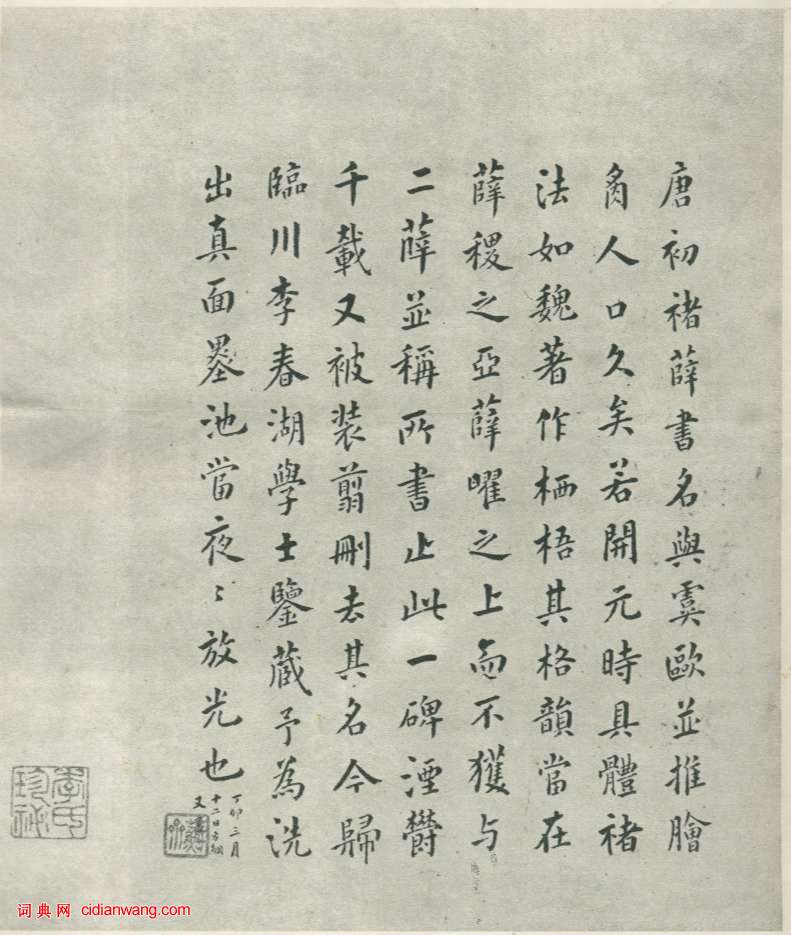 唐初褚薛書名與虞歐並推膾
炙人口久矣若開元時具體褚
法如魏著作栖梧其格韻當在
薛稷之亞薛曜之上而不獲与
二薛並稱所書止此一碑湮欝
千載又被装翦刪去其名今歸
臨川李春湖學士鑒蔵予為洗
出真面墨池當夜〻放光也
丁卯三月
十二日方綱
又
蘇
李氏珍祕
词典网 cidianwang.com